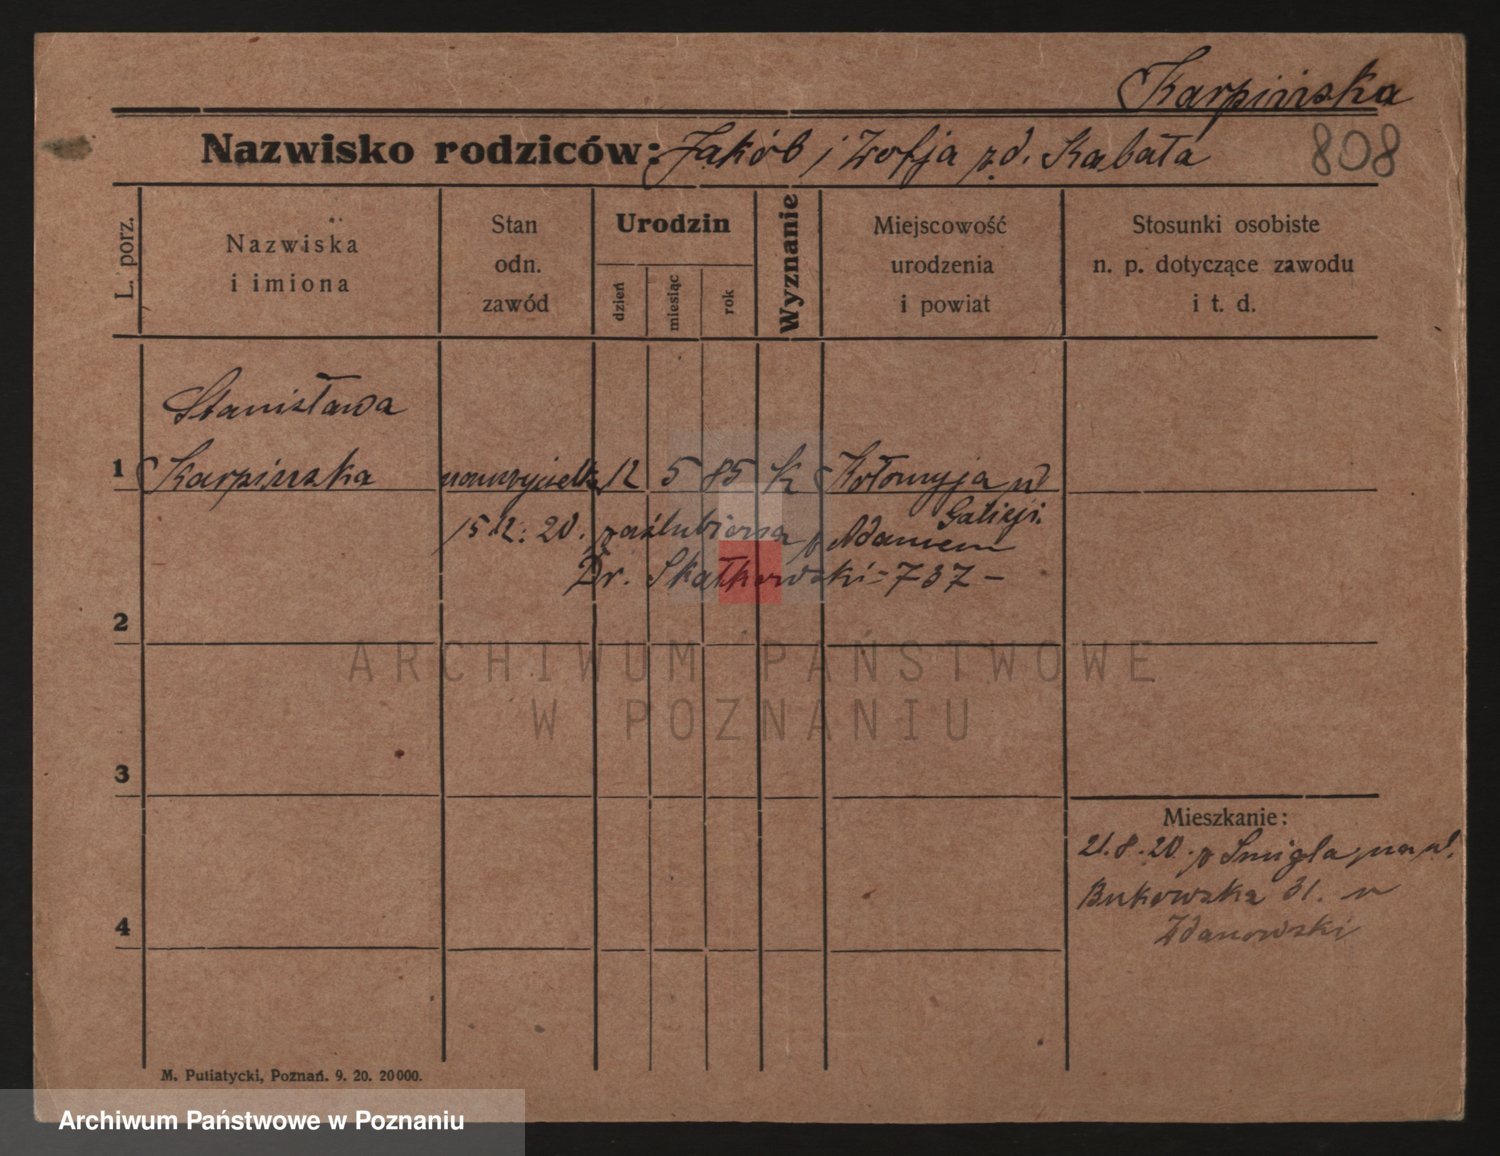 Karpińska
Nazwisko rodziców: Jakób i Zofja z d. Kabała 808
L. porz.
Nazwiska
i imiona
Stan
odn.
zawód
Urodzin
dzień
miesiąc
rok
Wyznanie
Miejscowość
urodzenia
i powiat
Stosunki osobiste
n. p. dotyczące zawodu
i t. d.
Stanisława
1 Karpinska nauczycielk 12 5 85 k Kołomyja w
Galicji.
15.12.20. zaślubiona z Adamem
Dr. Skałkowski - 737 -
2
3
4
ARCHIWUM PAŃSTWOWE
W POZNANIU
Mieszkanie:
21.8.20. z Smigla, na ul.
Bukowska 31. u
Zdanowski
M. Putiatycki, Poznań. 9. 20. 20000.
Archiwum Państwowe w Poznaniu